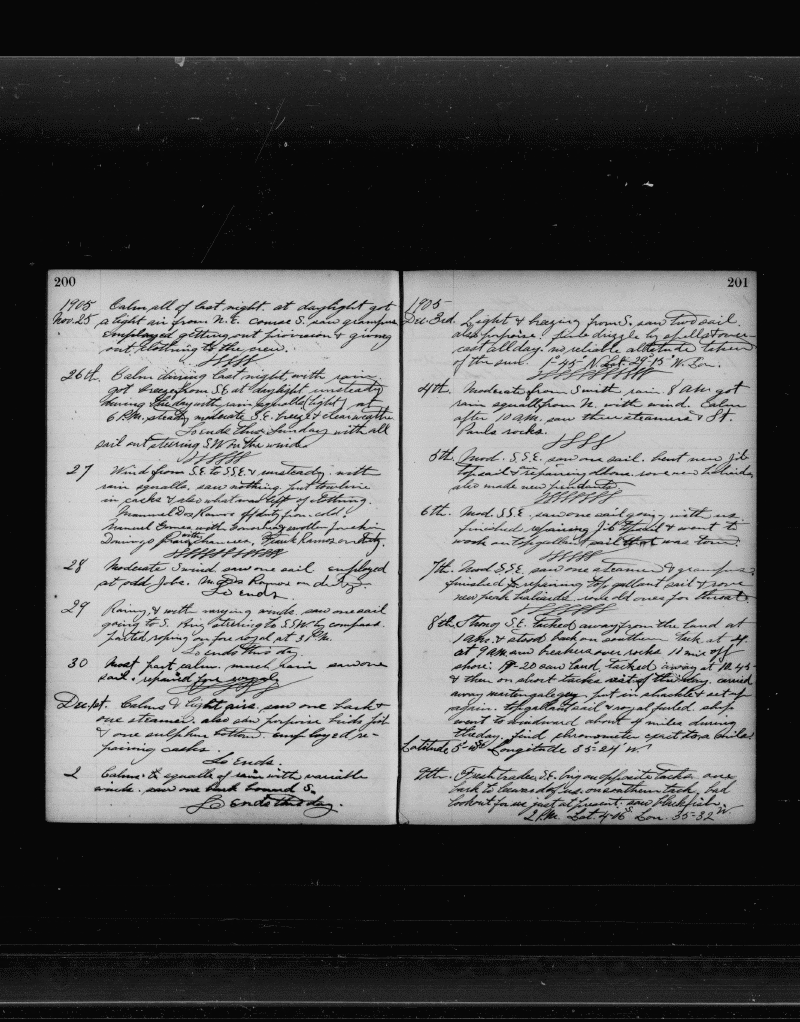 200
1905 Calm all of last night. at daylight got
Nov. 25 a light air from N.E. course S. saw grampus
employed getting out provision & giving
out clothing to the crew.
26th. Calm during last night with rain
got breeze from S.E. at daylight unsteady
during the day with rain squalls (light) at
6 P.M. steady moderate S.E. breeze & clear weather
So ends this Sunday with all
sail out steering S.W. on the wind
27 Wind from S.E. to S.S.E. & unsteady with
rain squalls. saw nothing. put
in casks & also what was left of clothing.
Manuel Dos Ramos off duty from cold.
Manuel Gomes with
Domingo Frank Ramos on duty.
28 Moderate S wind. saw one sail employed
at odd jobs. M. Do Ramos on duty.
So ends
29 Rainy, & with varying winds. saw one sail
going to S. Ring steering to S.S.W. by compass.
parted roping on fore royal at 3 P.M.
So ends this day.
30 Most part calm. much rain saw one
sail. repaired fore royal
Dec. 1st. Calms & light airs. saw one bark &
one steamer. also saw porpoise
& one sulphur bottom. employed re-
pairing casks.
So Ends.
2 Calms. & squalls of rain with variable
winds. saw one bark bound S.
So ends this day.
201
1905
Dec. 3rd. Light & breezing from S. saw two sail
also porpoise. fine drizzle by spells & over
cast all day. no reliable altitude taken
of the sun. 1°-45' N. Lat. 29-15' W. Lon.
4th. Moderate from S. with rain. 8 A.M. got
rain squall from N. with wind. Calm
after 10 A.M. saw three steamers & St.
Pauls rocks.
5th Mod. S.S.E. saw one sail. bent new jib
topsail & repairing old one. rove new halliards
also made new pendants
6th. Mod. S.S.E. saw one sail going with us
finished repairing Jib topsail & went to
work on top gallant sail that was torn.
7th. Mod S.S.E. saw one steamer & grampus
finished repairing top gallant sail & rove
new peak halliards. used old ones for throat.
8th Strong S.E. tacked away from the land at
1 A.M. & stood back on southern tack at 4.
at 9 A.M. saw breakers over rocks 10 miles off
shore. 9-20 saw land, tacked away at 10.45
& then on short tacks rest of the day. carried
away put in shackle & set up
again. top gallant sail & royal furled. ship
went to windward about 4 miles during
the day. find chronometer
Latitude 5- Longitude 35-24' W.
9th. Fresh trades S.E. by on opposite tacks. one
bark to leeward of us. on southern tack, bad
lookout for us just at present. saw blackfish.
2 P.M. Lat. 4-46 S Lon. 35-32' W.